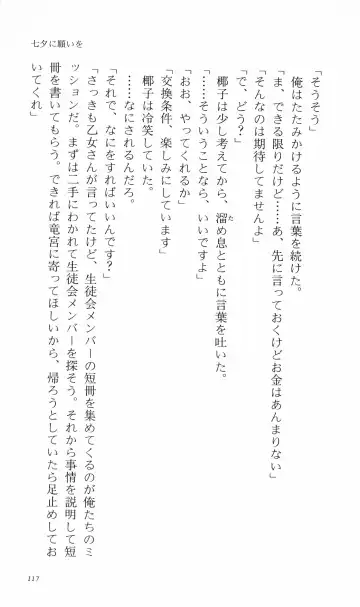 七夕に願いを
「そうそう」
俺はたたみかけるように言葉を続けた。
「ま、できる限りだけど……あ、先に言っておくけどお金はあんまりない」
「そんなのは期待してませんよ」
「で、どう?」
椰子は少し考えてから、溜め息とともに言葉を吐いた。
た
「……そういうことなら、いいですよ」
「おお、やってくれるか」
「交換条件、楽しみにしています」
椰子は冷笑していた。
……なにされるんだろ。
「それで、なにをすればいいんです?」
「さっきも乙女さんが言ってたけど、生徒会メンバーの短冊を集めてくるのが俺たちのミ
ッションだ。まずは二手にわかれて生徒会メンバーを探そう。それから事情を説明して短
冊を書いてもらう。できれば竜宮に寄ってほしいから、帰ろうとしていたら足止めしてお
いてくれ」
117